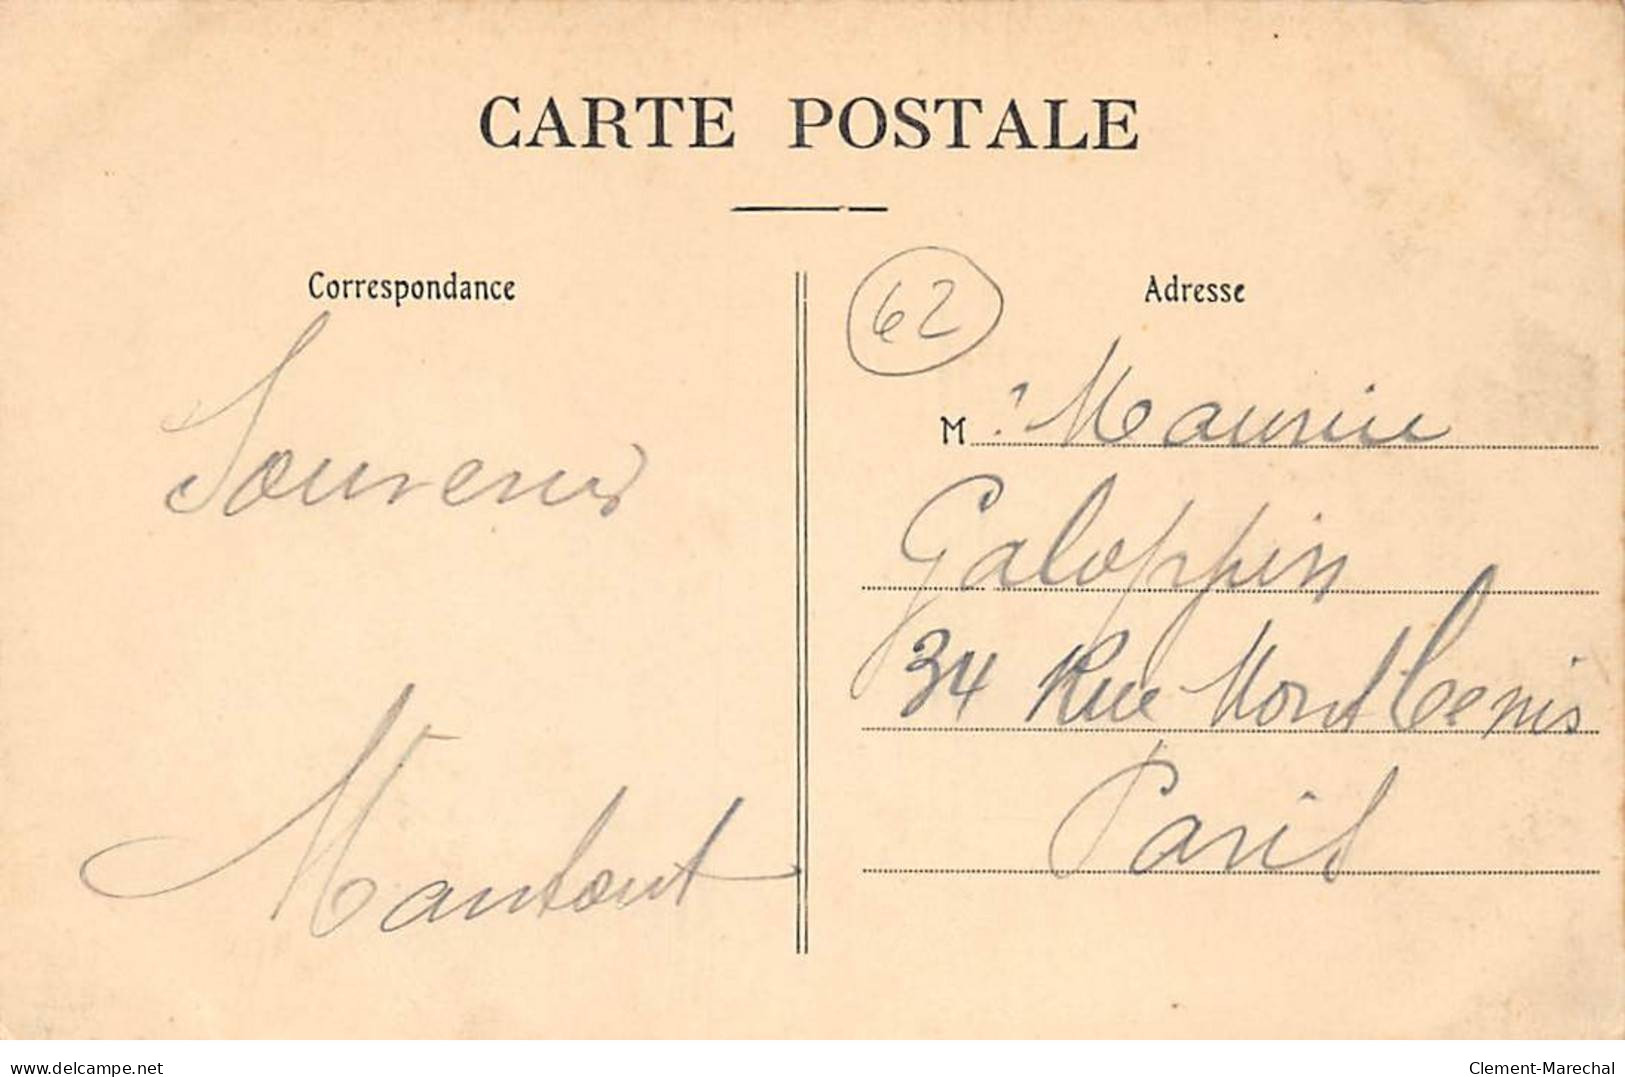 CARTE POSTALE
Correspondance
Souvenir
Mautout
62
Adresse
M. Maurice
Galoppin
34 Rue Mont Cenis
Paris
www.delcampe.net
Clement-Marechal